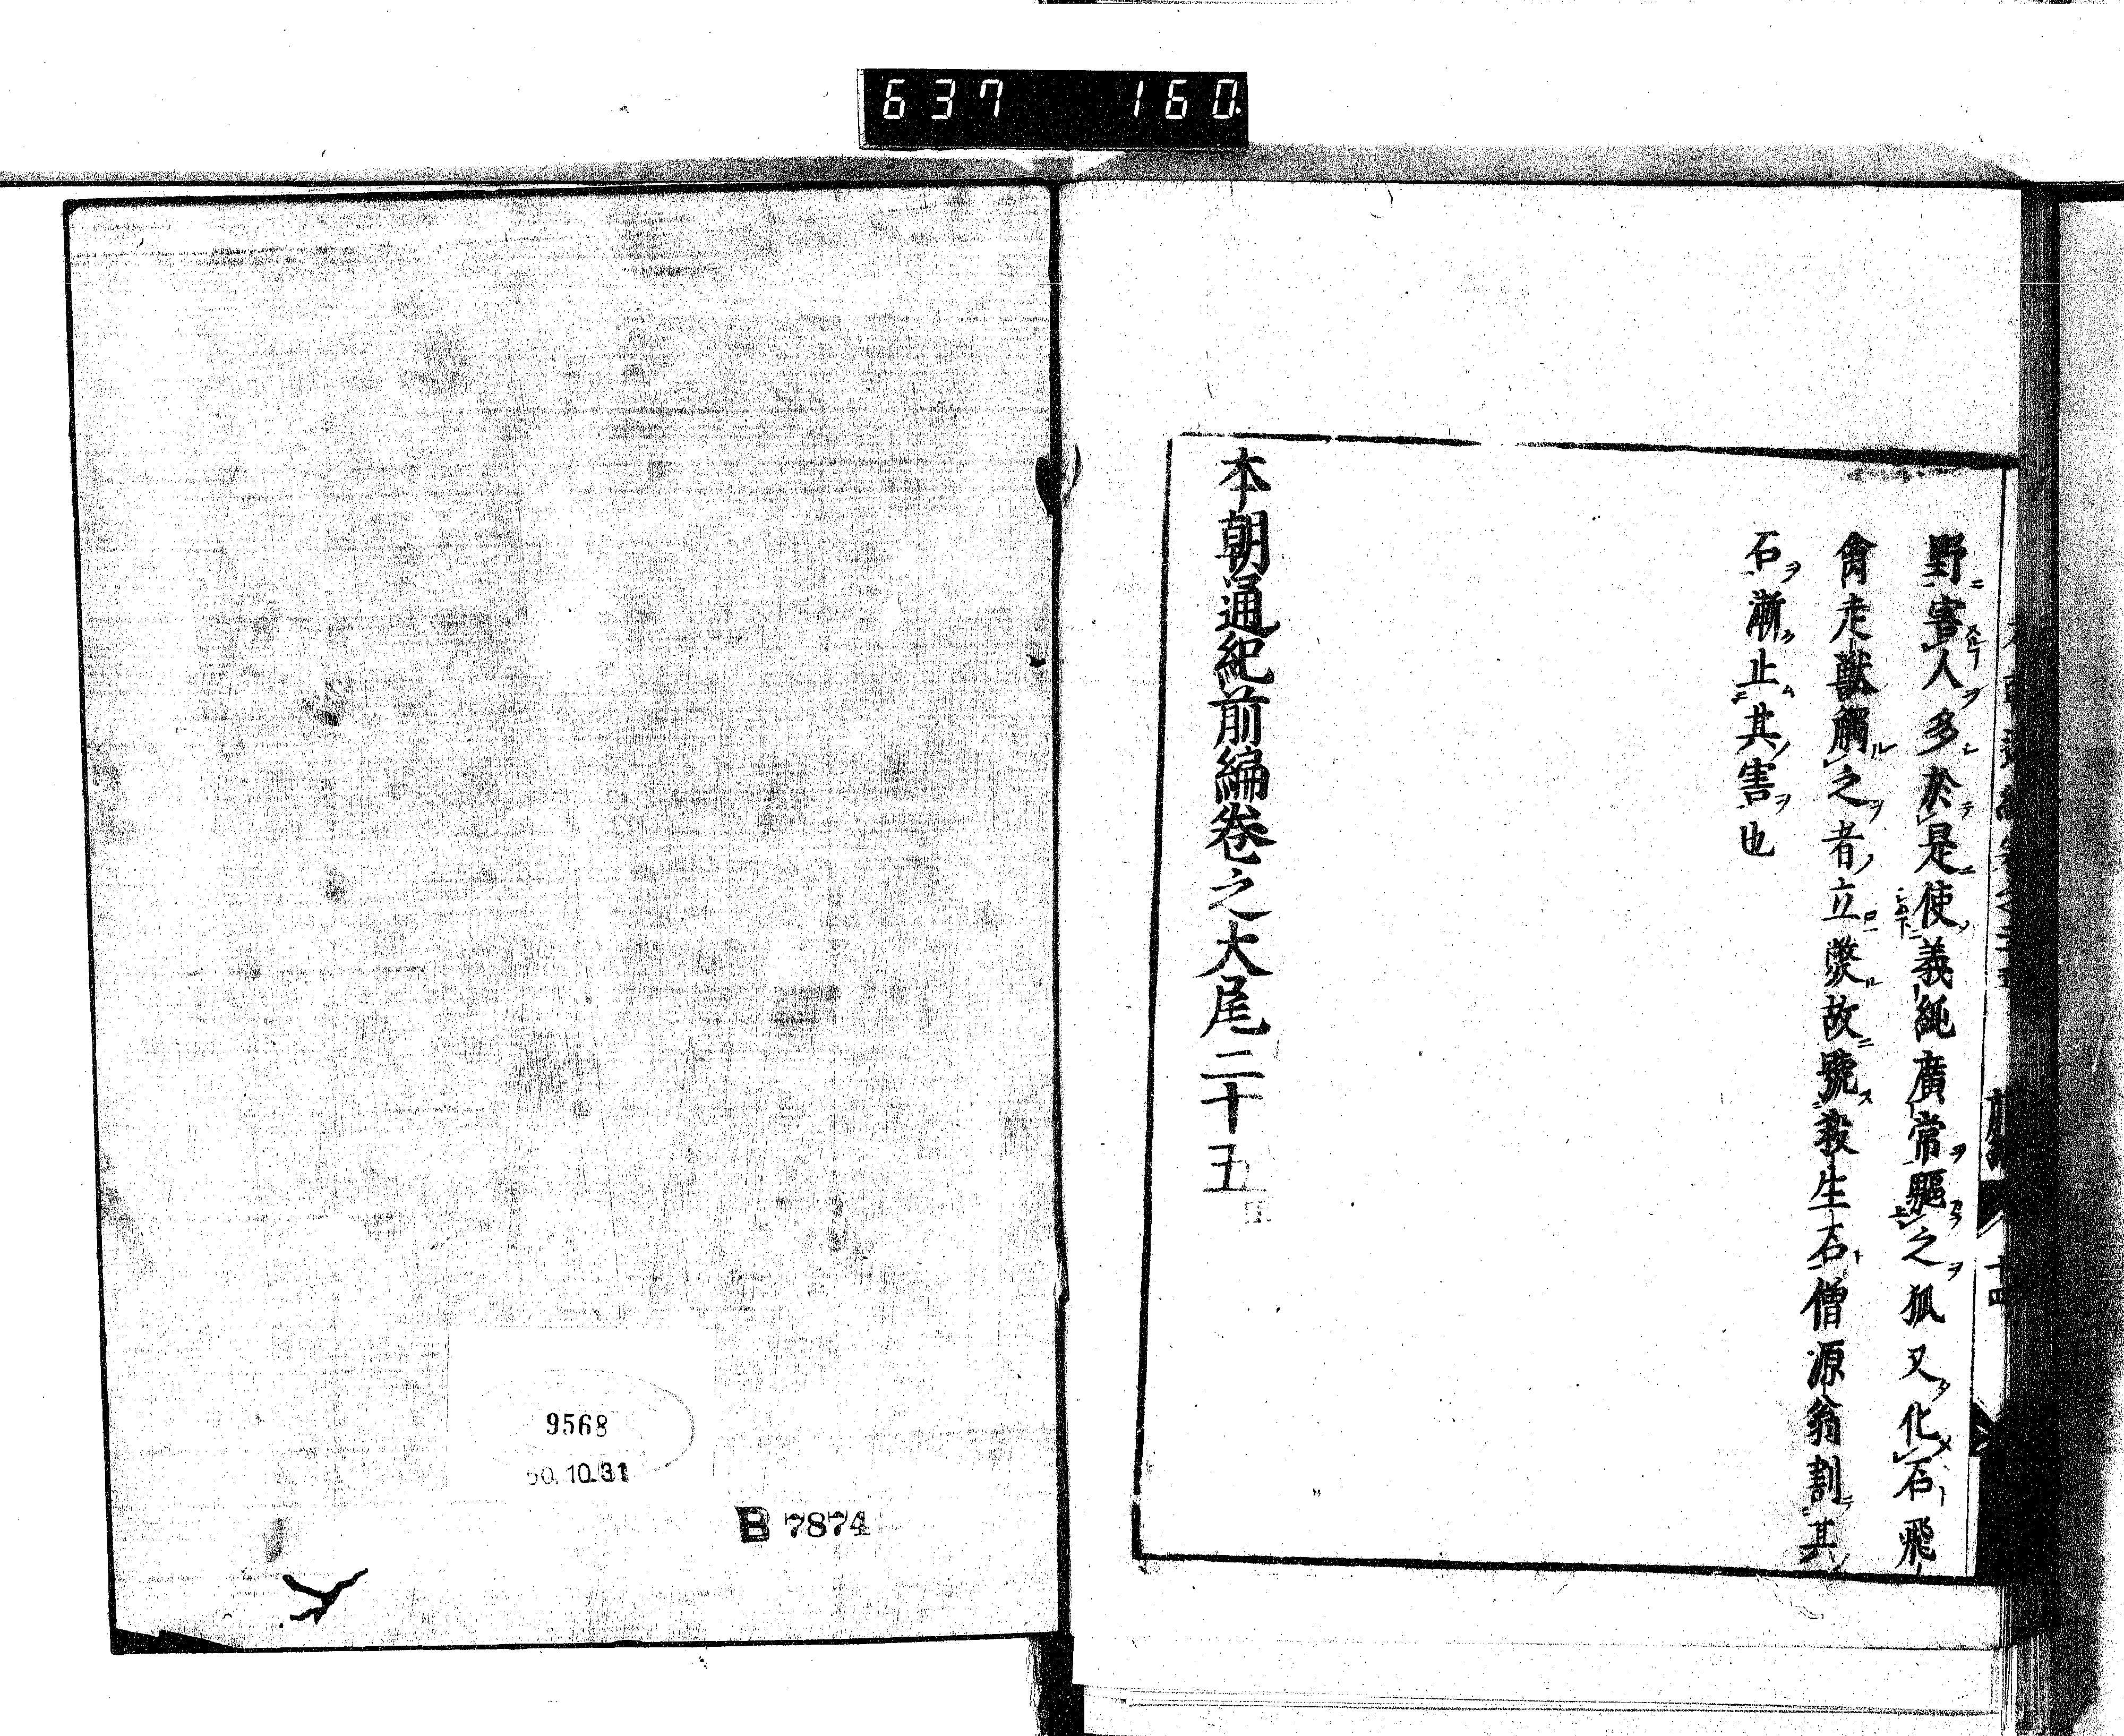 637 160.
野害人多於是使義純廣常驅之狐又化石飛
禽走獸觸之者立斃故號殺生石僧源翁割其
石漸止其害也
本朝通紀前編卷之大尾二十五
9568
50.10.31
B 7874